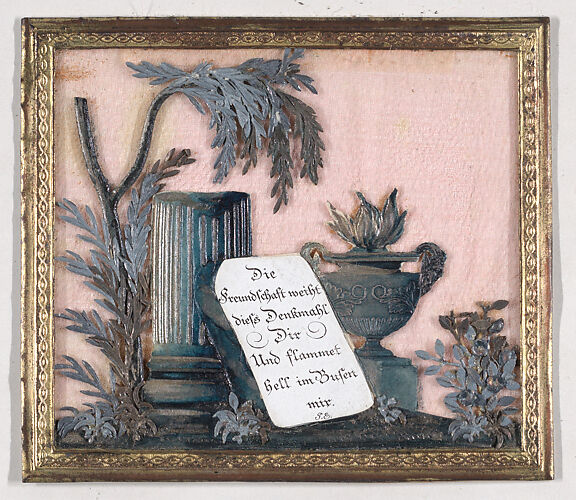 Die
Freundschaft weiht
diess Denkmahl
Dir
Und flammet
hell im Busen
mir.